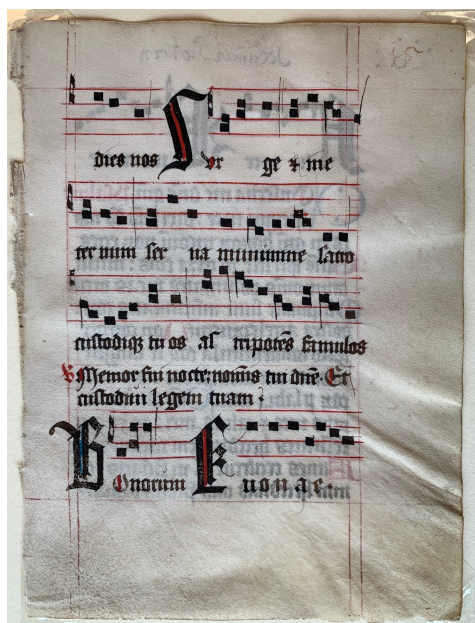 dies nos Sur ge & me
ter num ser ua munimine sacro
custodiqȝ tu os as tripotēs famulos
℣ Memor fui nocte noīs tui dn̄e Et
custodiui legem tuam.
Bonorum E u o u a e.